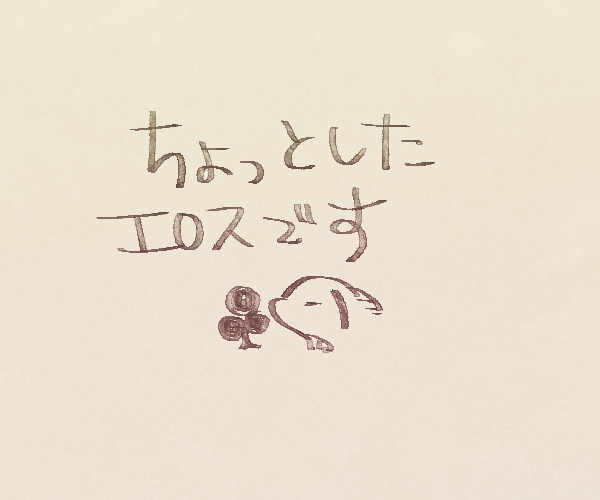 ちょっとした
エロスです